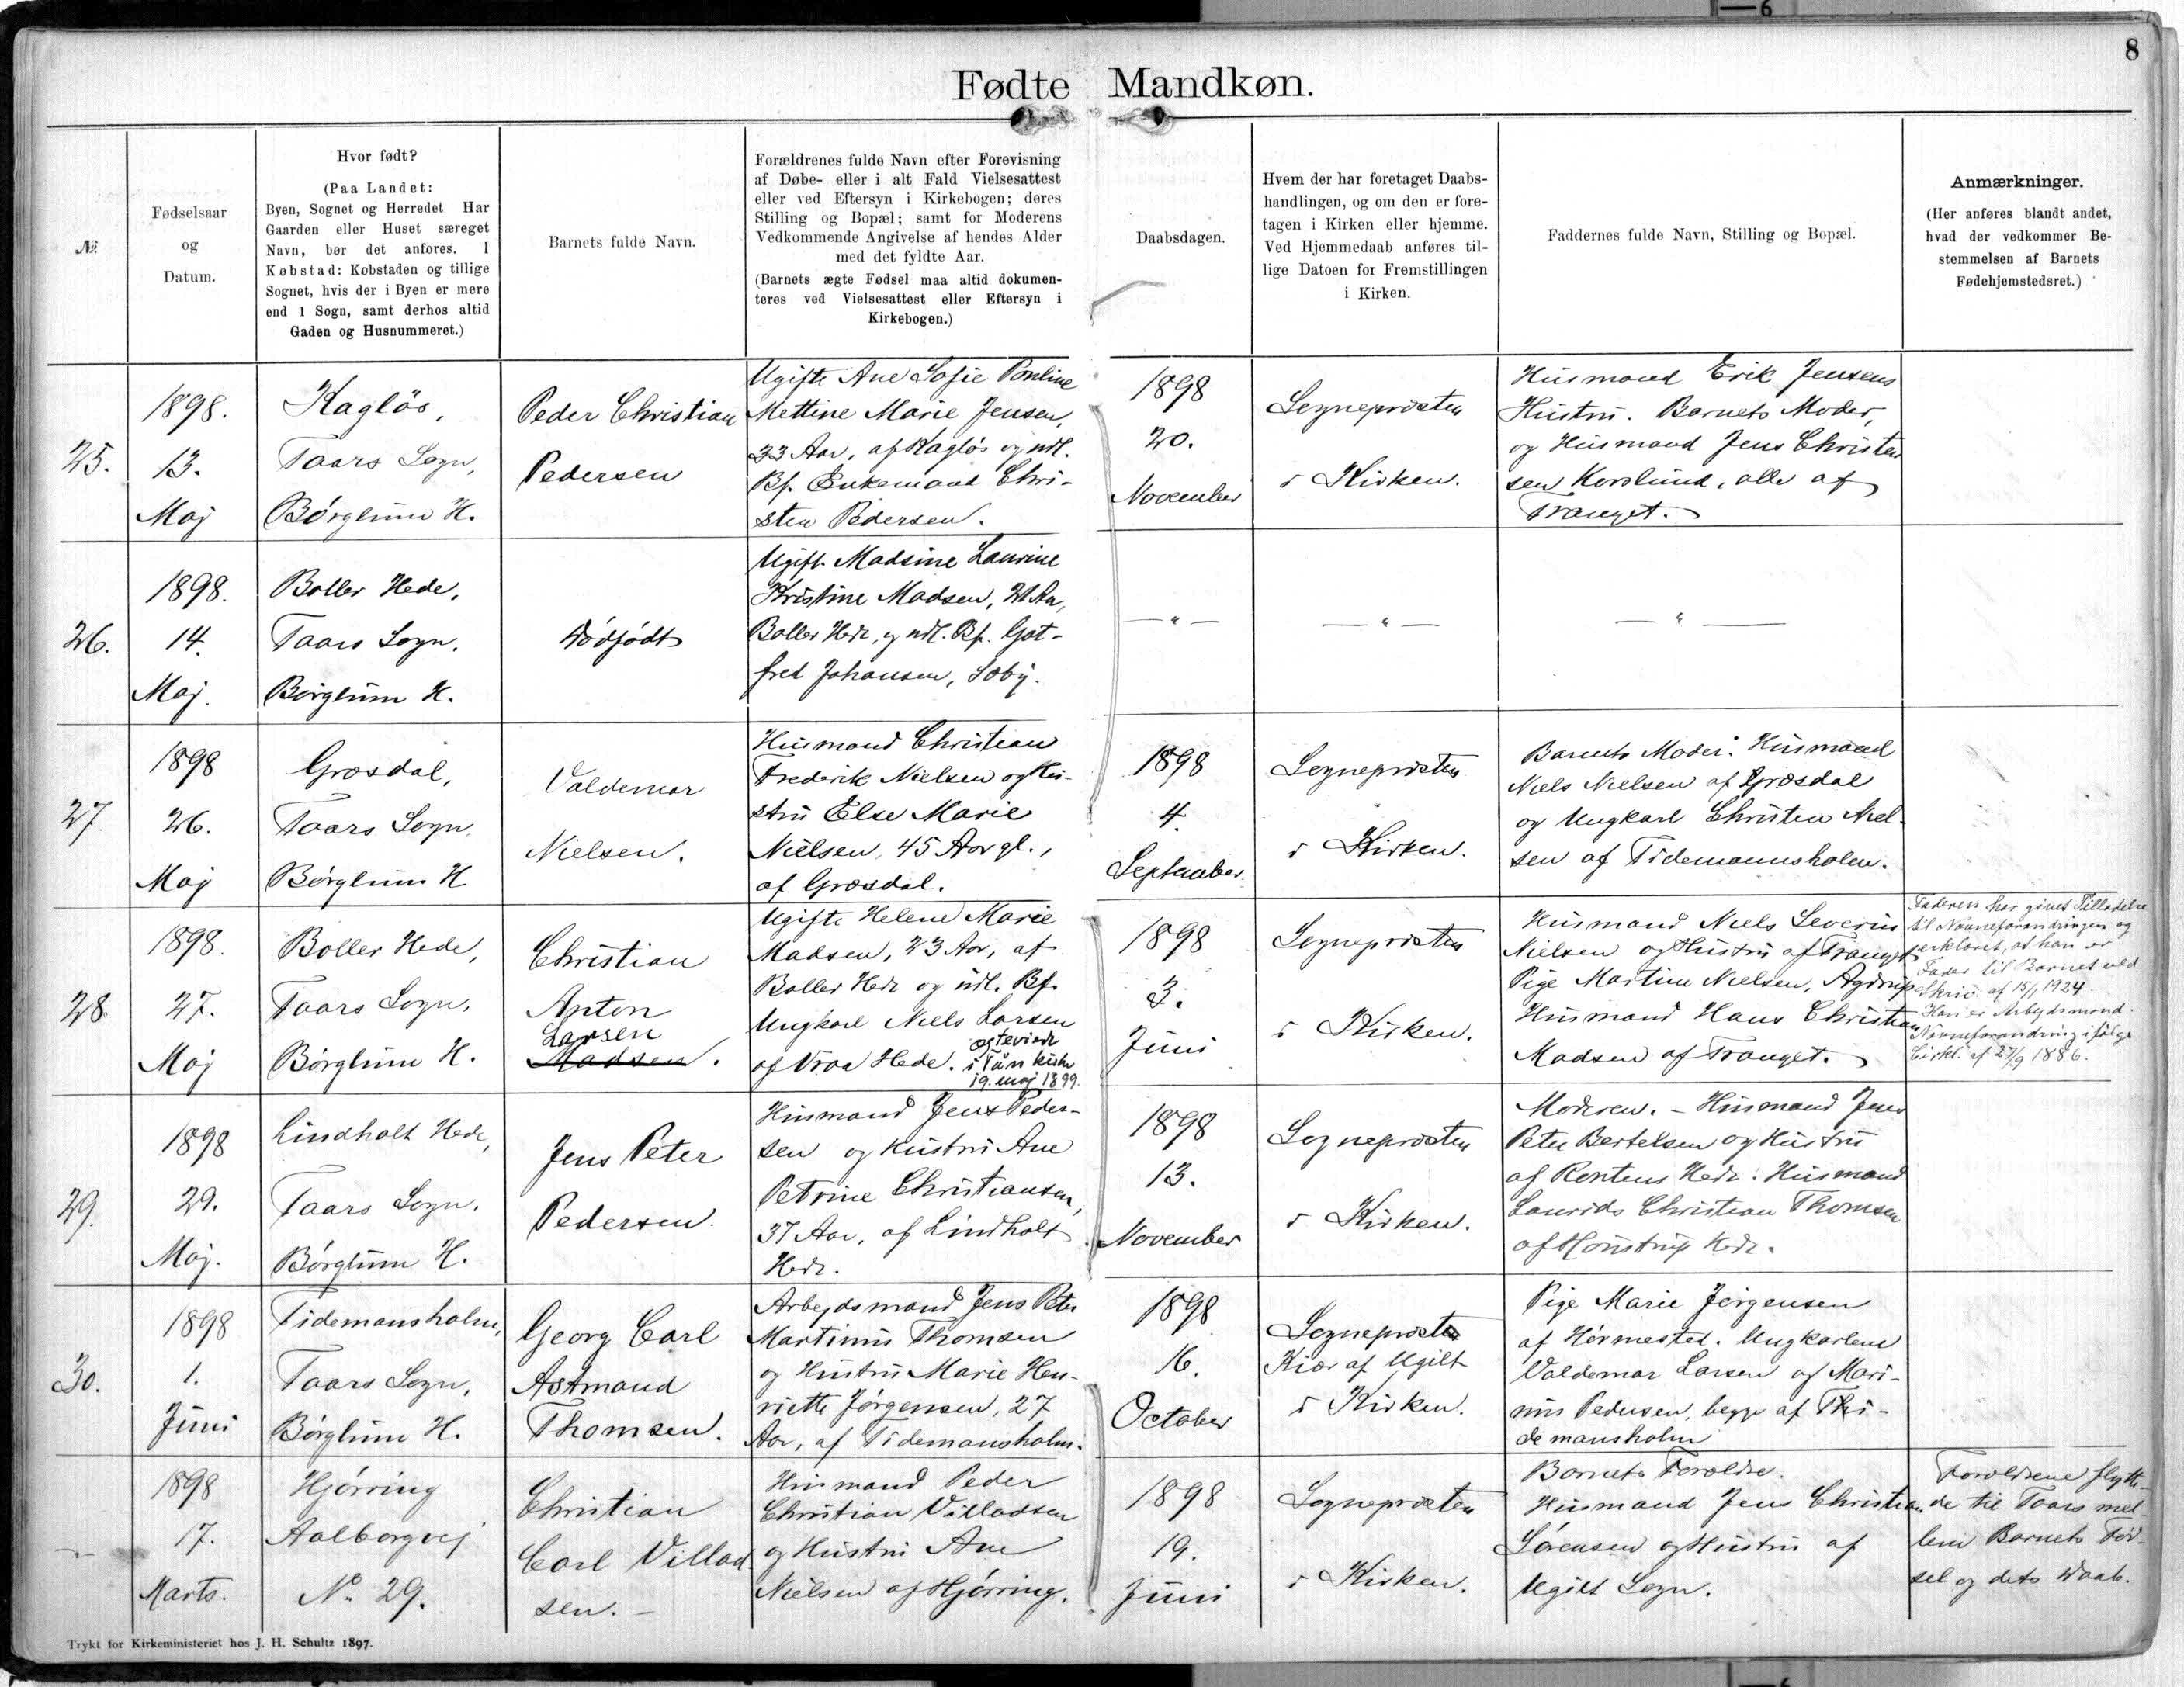 8
Fødte Mandkøn.
№
Fødselsaar
og
Datum.
Hvor født?
(Paa Landet:
Byen, Sognet og Herredet Har
Gaarden eller Huset særeget
Navn, bør det anføres. I
Købstad: Købstaden og tillige
Sognet, hvis der i Byen er mere
end 1 Sogn, samt derhos altid
Gaden og Husnummeret.)
Barnets fulde Navn.
Forældrenes fulde Navn efter Forevisning
af Døbe- eller i alt Fald Vielsesattest
eller ved Eftersyn i Kirkebogen; deres
Stilling og Bopæl; samt for Moderens
Vedkommende Angivelse af hendes Alder
med det fyldte Aar.
(Barnets ægte Fødsel maa altid dokumen-
teres ved Vielsesattest eller Eftersyn i
Kirkebogen.)
Daabsdagen.
Hvem der har foretaget Daabs-
handlingen, og om den er fore-
tagen i Kirken eller hjemme.
Ved Hjemmedaab anføres til-
lige Datoen for Fremstillingen
i Kirken.
Faddernes fulde Navn, Stilling og Bopæl.
Anmærkninger.
(Her anføres blandt andet,
hvad der vedkommer Be-
stemmelsen af Barnets
Fødehjemstedsret.)
25.
1898.
13.
Maj
Kagløs,
Taars Sogn,
Børglum H.
Peder Christian
Pedersen
Ugifte Ane Sofie Pouline
Mettine Marie Jensen,
33 Aar, af Kagløs og udl.
Bf. Enkemand Chri-
sten Pedersen.
1898
20.
November
Sognepræsten
i Kirken.
Husmand Erik Jensens
Hustru. Barnets Moder,
og Husmand Jens Christen
sen Korslund, alle af
Tranget.
26.
1898.
14.
Maj.
Boller Hede,
Taars Sogn,
Børglum H.
Dødfødt
Ugift Madsine Laurine
Kristine Madsen, 21 Aar,
Boller Hede, og udl. Bf. Got-
fred Johansen, Soby.
— " —
— " —
— " —
27
1898
26.
Maj
Græsdal,
Taars Sogn,
Børglum H
Valdemar
Nielsen.
Husmand Christian
Frederik Nielsen og Hu-
stru Else Marie
Nielsen, 45 Aar gl.,
af Græsdal.
1898
4.
September
Sognepræsten
i Kirken.
Barnets Moder. Husmand
Niels Nielsen af Græsdal
og Ungkarl Christen Niel-
sen af Tidemannsholm.
28
1898.
27.
Maj
Boller Hede,
Taars Sogn,
Børglum H.
Christian
Anton
Larsen
Madsen.
Ugifte Helene Marie
Madsen, 23 Aar, af
Boller Hede og udl. Bf.
Ungkarl Niels Larsen
af Vraa Hede.
i Tårs kirke
19. maj 1899.
1898
3.
Juni
Sognepræsten
i Kirken.
Husmand Niels Severin
Nielsen og Hustru af Tranget
Pige Martine Nielsen, Agdrup
Husmand Hans Christian
Madsen af Tranget.
Faderen har givet Tilladelse
til Navneforandringen og
erklæret, at han er
Fader til Barnet ved
Skriv. af 15/1 1924.
Han er Arbejdsmand.
Navneforandring ifølge
Cirkl. af 27/9 1886.
29.
1898
29.
Maj.
Lindholt Hede,
Taars Sogn.
Børglum H.
Jens Peter
Pedersen.
Husmand Jens Peder-
sen og Hustru Ane
Petrine Christiansen,
37 Aar, af Lindholt
Hede.
1898
13.
November
Sognepræsten
i Kirken.
Moderen. - Husmand Jens
Peter Bertelsen og Hustru
af Rontens Hede. Husmand
Laurids Christian Thomsen
af Honstrup Hede.
30.
1898
1.
Juni
Tidemansholm,
Taars Sogn,
Børglum H.
Georg Carl
Astmand
Thomsen.
Arbejdsmand Jens Peter
Martinus Thomsen
og Hustru Marie Hen-
riette Jørgensen, 27
Aar, af Tidemansholm.
1898
16.
October
Sognepræsten
Kiær af Ugilt
i Kirken.
Pige Marie Jørgensen
af Hørmested. Ungkarlene
Valdemar Larsen og Mari-
nus Pedersen, begge af Thi-
demansholm
1898
17.
Marts.
Hjørring
Aalborgvej
No. 29.
Christian
Carl Villad
sen. -
Husmand Peder
Christian Villadsen
og Hustru Ane
Nielsen af Hjørring.
1898
19.
Juni
Sognepræsten
i Kirken.
Barnets Forældre.
Husmand Jens Christian
Sørensen og Hustru af
Ugilt Sogn.
Forældrene flytte-
de til Taars mel-
lem Barnets Fød-
sel og dets Daab.
Trykt for Kirkeministeriet hos J. H. Schultz 1897.